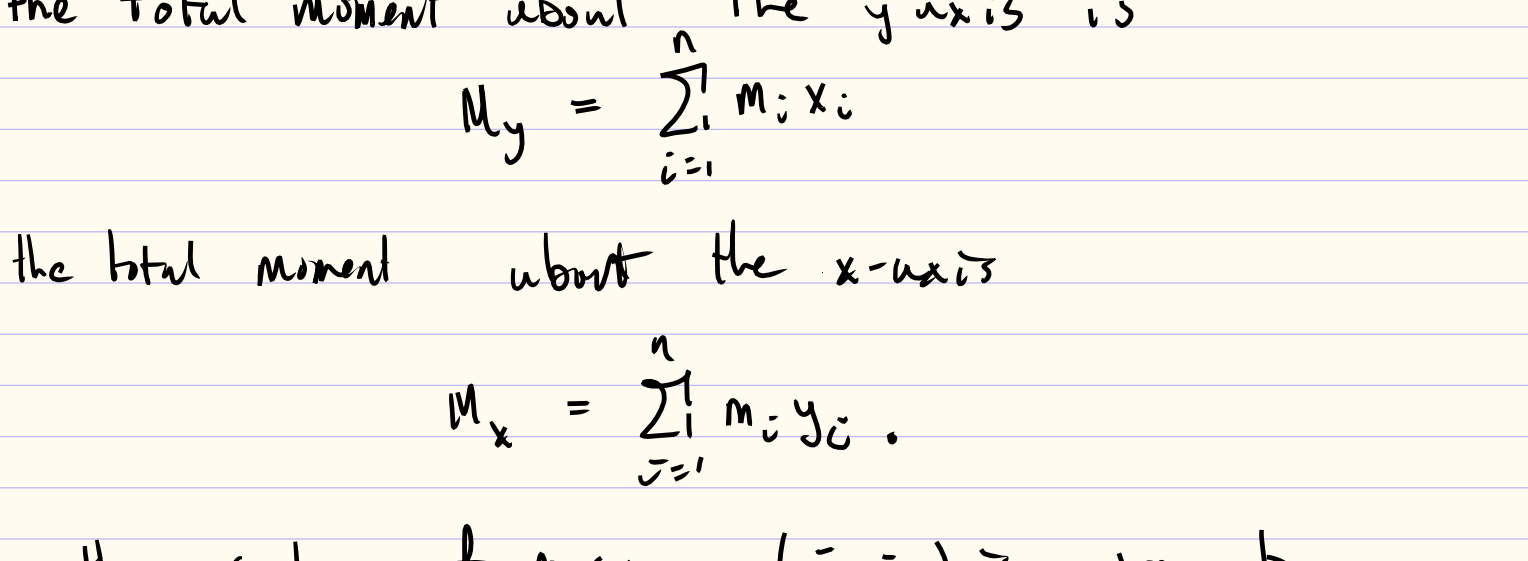 the total moment about the y axis is
n
M_y = ∑ m_i x_i
i=1
the total moment about the x-axis
n
M_x = ∑ m_i y_i .
i=1